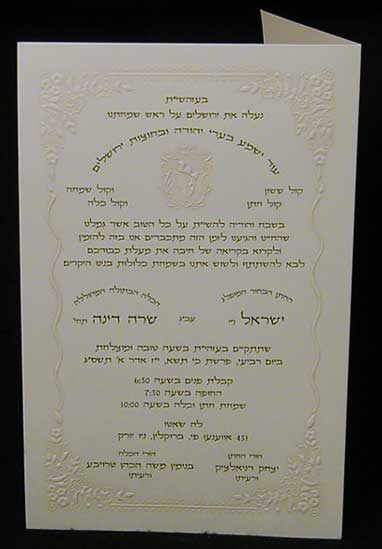 בעזהשי"ת
נעלה את ירושלים על ראש שמחתנו
עוד ישמע בערי יהודה ובחוצות ירושלים
קול ששון וקול שמחה
קול חתן וקול כלה
בשבח והודיה להשי"ת על כל הטוב אשר גמלנו
שהחיינו והגיענו לזמן הזה מתכבדים אנו בזה להזמין
ולקרוא בקריאה של חיבה את מעלת כבודכם
לבא להשתתף ולשוש אתנו בשמחת כלולות בנינו היקרים
החתן הבחור המופלג הכלה הבתולה המהוללה
ישראל ני" עב"ג שרה דינה תחי'
שתתקיים בעזה"ת בשעה טובה ומוצלחת
ביום רביעי, פרשת כי תשא, י"ז אדר א' תשס"ג
קבלת פנים בשעה 6:30
החופה בשעה 7:30
שמחת חתן וכלה בשעה 10:00
לה שאטו
451 אווענעו פי, ברוקלין, ניו יורק
הורי החתן הורי הכלה
יצחק דניאלציק בנימין משה הכהן
ורעיתו ורעיתו